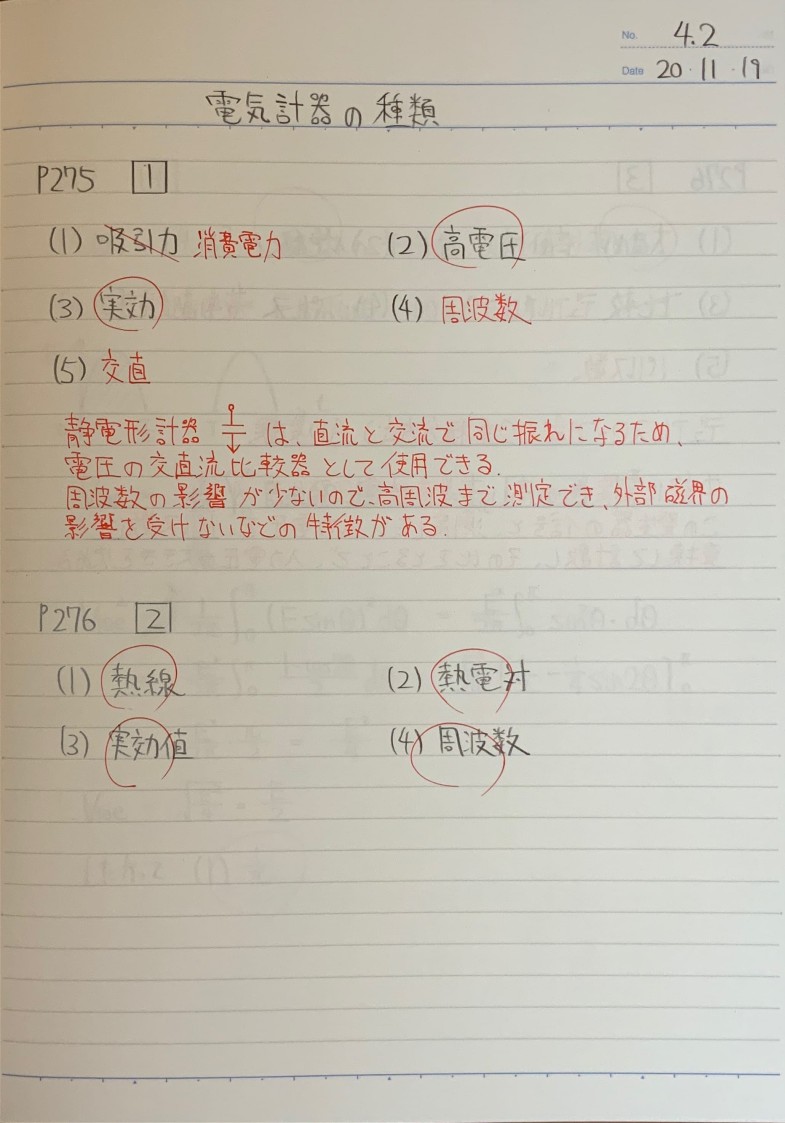 No. 4.2
Date 20・11・19
電気計器の種類
P275 1
(1) 吸引力 消費電力 (2) 高電圧
(3) 実効 (4) 周波数
(5) 交直
静電形計器 は、直流と交流で同じ振れになるため、
電圧の交直流比較器として使用できる.
周波数の影響が少ないので、高周波まで測定でき、外部磁界の
影響を受けないなどの特徴がある.
P276 2
(1) 熱線 (2) 熱電対
(3) 実効値 (4) 周波数